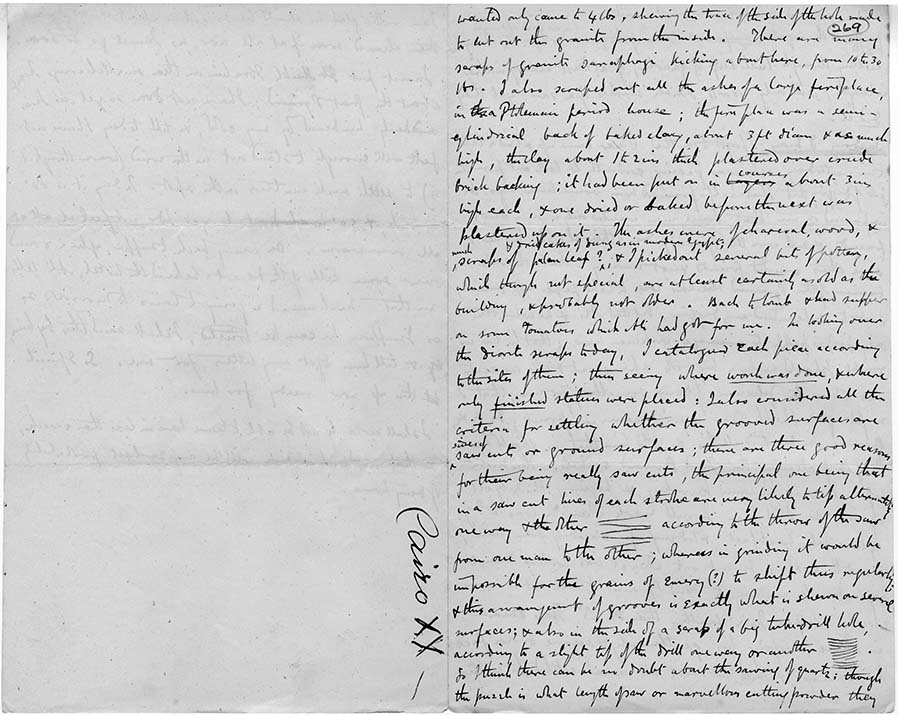 269
wanted only came to 4 lbs, shewing the trace of the side of the hole made
to cut out the granite from the inside. There are many
scraps of granite sarcophagi kicking about here, from 10 to 30
lbs. I also scraped out all the ashes of a large fireplace,
in a Ptolemaic period house; the fireplace was a semi-
cylindrical back of baked clay, about 3 ft diam & as much
high, the clay about 1 to 2 ins thick plastered over crude
brick backing; it had been put on in courses about 3 ins
high each, & one dried or baked before the next was
plastered up on it. The ashes were of charcoal, wood, &
much scraps of palm leaf? & dried cakes of dung as in modern Egypt; & I picked out several bits of pottery,
which though not special, are at least certainly as old as the
building, & probably not older. Back to tomb & had supper
on some tomatoes which Ali had got for me. In looking over
the diorite scraps today, I catalogued each piece according
to the sites of them; thus seeing where work was done, & where
only finished statues were placed: I also considered all the
criteria for settling whether the grooved surfaces are
sides of saw cuts or ground surfaces; there are three good reasons
for their being really saw cuts, the principal one being that
in a saw cut lines of each stroke are very likely to tip alternately
one way & the other according to the throw of the saw
from one man to the other; whereas in grinding it would be
impossible for the grains of Emery (?) to shift thus regularly,
& this arrangement of grooves is exactly what is shewn on several
surfaces; & also in the side of a scrap of a big tube-drill hole,
according to a slight tip of the drill one way or another .
So I think there can be no doubt about the sawing of quartz; though
the puzzle is what length of saw or marvellous cutting powder they
Cairo XX —